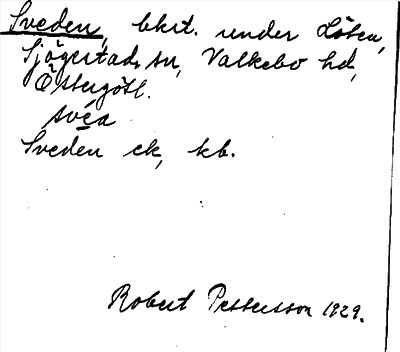 Sveden, bkst. under Löten,
Sjögestads sn, Valkebo hd,
Östergötl.
svéa
Sveden ek, kb.
Robert Pettersson 1929.